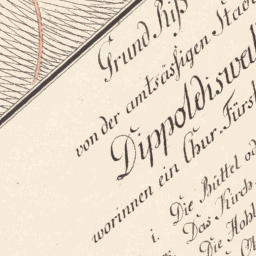 Grund Riß
von der amtsäßigen Stadt
Dippoldiswal
worinnen ein Chur-Fürst
1. Die Büttel od
Das Kirch
Die Hohl